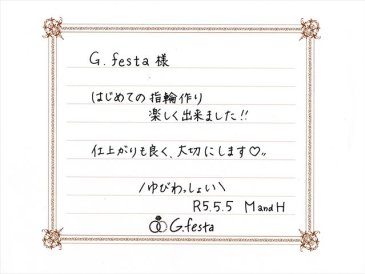 G.festa 様
はじめての指輪作り
楽しく出来ました!!
仕上がりも良く、大切にします♡〟
/ゆびわっしょい\
R5.5.5 M and H
G.festa